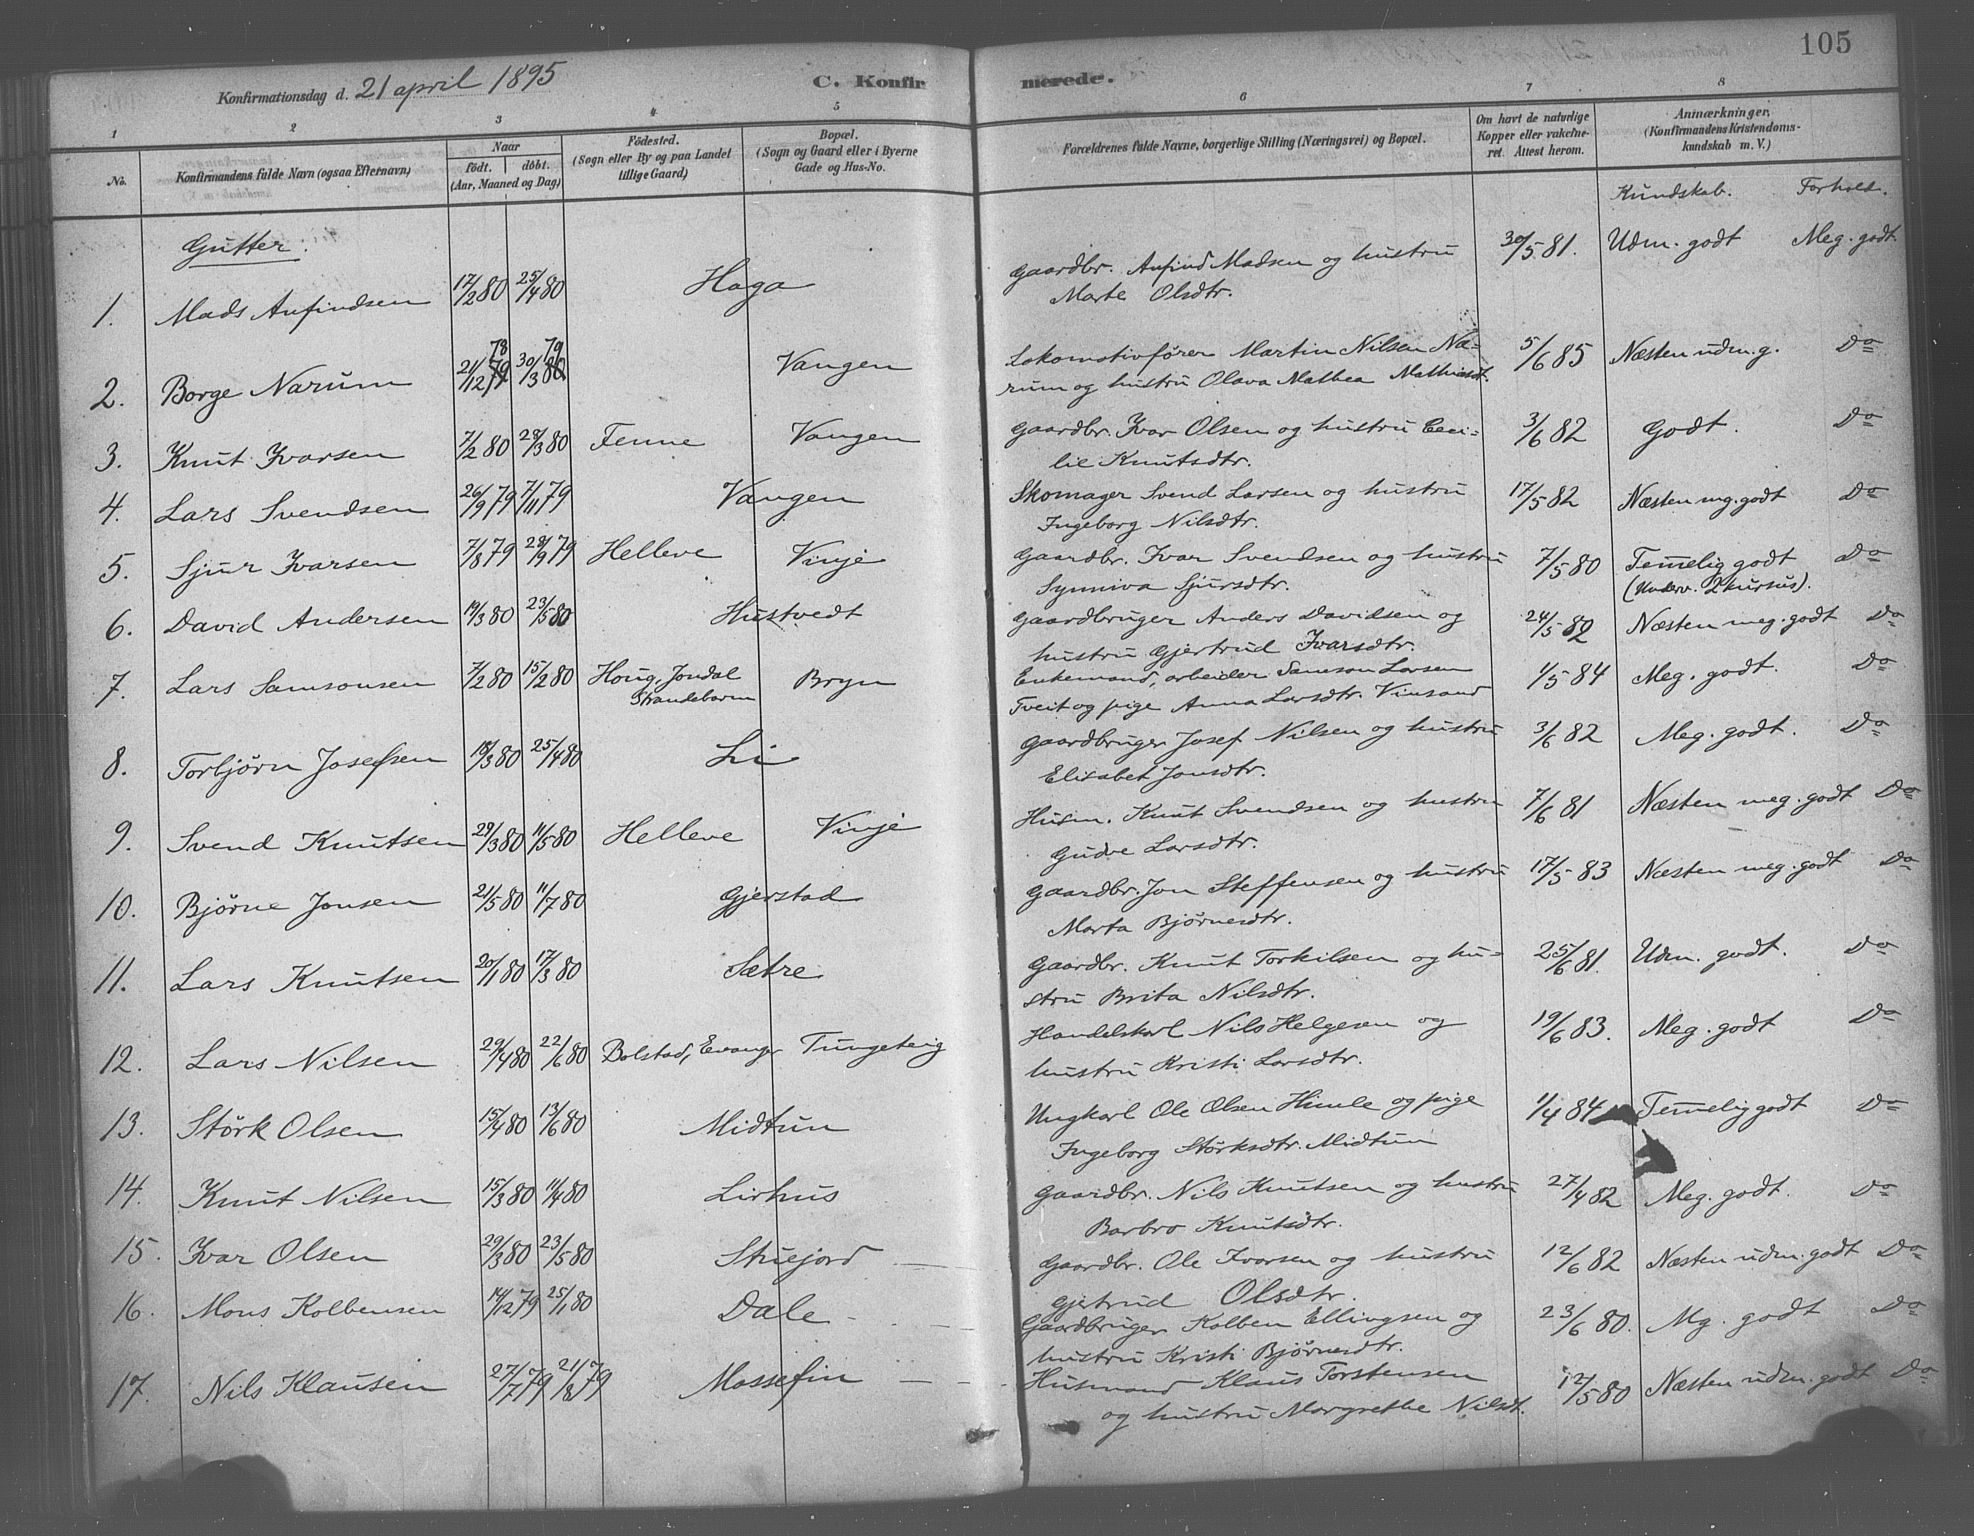 105
Konfirmationsdag d. 21 april 1895 C. Konfirmerede.
1 2 3 4 5 6 7 8
No. Konfirmandens fulde Navn (ogsaa Efternavn) Naar födt. döbt. (Aar, Maaned og Dag) Födested. (Sogn eller By og paa Landet tillige Gaard) Bopæl. (Sogn og Gaard eller i Byerne Gade og Hus-No. Forældrenes fulde Navne, borgerlige Stilling (Næringsvei) og Bopæl. Om havt de naturlige Kopper eller vakcineret. Attest herom. Anmærkninger, (Konfirmandens Kristendomskundskab m. V.)
Kundskab. Forhold.
Gutter.
1. Mads Anfindsen 17/2 80 25/4 80 Haga Gaardbr. Anfind Madsen og hustru 30/5 81. Udm. godt Meg. godt.
Marte Olsdtr.
2. Borge Narum 21/12 78 30/3 79 Vangen Lokomotivfører Martin Nilsen Næ- 5/6 85 Næsten udm. g. Do
rum og hustru Olava Mathea Mathiasdt.
3. Knut Ivarsen 7/2 80 28/3 80 Fenne Vangen Gaardbr. Ivar Olsen og hustru Ceci- 3/6 82 Godt. Do
lie Knutsdtr.
4. Lars Svendsen 26/9 79 7/11 79 Vangen Skomager Svend Larsen og hustru 17/5 82 Næsten mg. godt Do
Ingeborg Nilsdtr.
5. Sjur Ivarsen 7/8 79 28/9 79 Helleve Vinje Gaardbr. Ivar Svendsen og hustru 7/5 80 Temelig godt Do
Synniva Sjursdtr. (Underv. 2 kursus).
6. David Andersen 19/3 80 23/5 80 Hustvedt Gaardbruger Anders Davidsen og 24/5 82 Næsten meg. godt Do
hustru Gjertrud Ivarsdtr.
7. Lars Samsonsen 7/2 80 15/2 80 Houg, Jondal Bryn Enkemand, arbeider Samson Larsen 1/5 84 Meg. godt. Do
Strandebarm Tveit og pige Anna Larsdtr. Vinsand
8. Torbjørn Josefsen 18/3 80 25/4 80 Li Gaardbruger Josef Nilsen og hustru 3/6 82 Meg. godt. Do
Elisabet Jonsdtr.
9. Svend Knutsen 29/3 80 11/5 80 Helleve Vinje Husm. Knut Svendsen og hustru 7/6 81 Næsten meg. godt Do
Gudve Larsdtr.
10. Bjørne Jonsen 21/5 80 11/7 80 Gjerstad Gaardbr. Jon Steffensen og hustru 17/5 83 Næsten meg. godt Do
Marta Bjørnesdtr.
11. Lars Knutsen 20/1 80 17/3 80 Sætre Gaardbr. Knut Torkilsen og hu- 25/6 81. Udm. godt. Do
stru Brita Nilsdtr.
12. Lars Nilsen 29/4 80 22/6 80 Bolstad, Evanger Tungeteig Handelskarl Nils Helgesen og 19/6 83. Meg. godt Do
hustru Kristi Larsdtr.
13. Störk Olsen 15/4 80 13/6 80 Midtun Ungkarl Ole Olsen Himle og pige 1/4 84 Temelig godt Do
Ingeborg Störksdtr. Midtun
14. Knut Nilsen 15/3 80 11/4 80 Lirhus Gaardbr. Nils Knutsen og hustru 27/4 82 Meg. godt. Do
Barbro Knutsdtr.
15. Ivar Olsen 29/3 80 23/5 80 Stuejord Gaardbr. Ole Ivarsen og hustru 12/6 82 Næsten udm. godt Do
Gjertrud Olsdtr.
16. Mons Kolbensen 14/12 79 25/1 80 Dale Gaardbruger Kolben Ellingsen og 23/6 80. Mg. godt Do
hustru Kristi Bjørnesdtr.
17. Nils Klausen 27/7 79 21/8 79 Mossefin Husmand Klaus Torstensen 12/5 80 Næsten udm. godt Do
og hustru Margrethe Nilsdt.